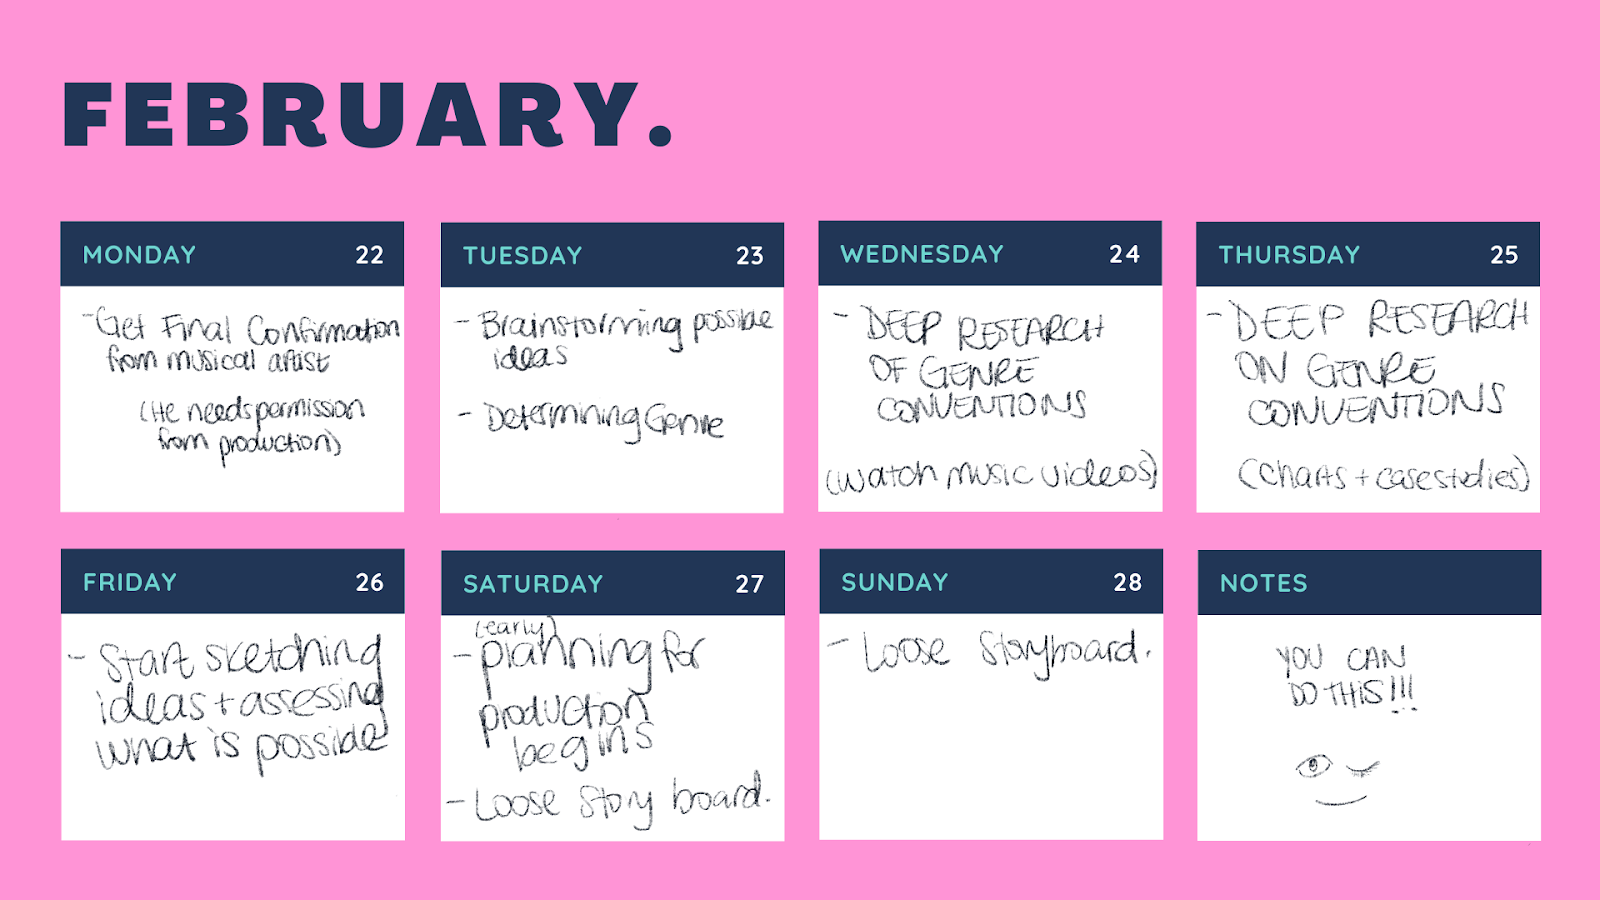 FEBRUARY.
MONDAY 22
-Get Final Confirmation
from musical artist
(He needs permission
from production)
TUESDAY 23
- Brainstorming possible
ideas
- Determining Genre
WEDNESDAY 24
- DEEP RESEARCH
OF GENRE
CONVENTIONS
(watch music videos)
THURSDAY 25
- DEEP RESEARCH
ON GENRE
CONVENTIONS
(charts + case studies)
FRIDAY 26
- Start sketching
ideas + assessing
what is possible
SATURDAY 27
(early)
- planning for
production
begins
- Loose Story board.
SUNDAY 28
- Loose Storyboard.
NOTES
YOU CAN
DO THIS!!!